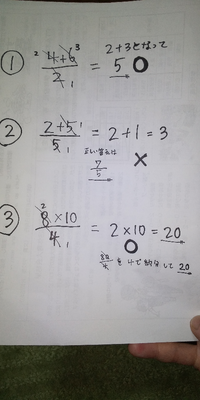 ① 2 4+6 3 / 2 1 = 2+3となって
5 ○
② 2+5 1 / 5 1 = 2+1=3
正しい答えは
7/5 ×
③ 2 8×10 / 4 1 = 2×10=20
○
80/4 を4で約分して 20